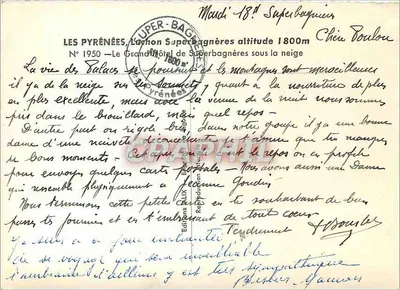 Mardi 18h Superbagnères
SUPER-BAGNÈRES
1800m
Pyrénées
LES PYRÉNÉES, Luchon Superbagnères altitude 1800m
Chère Poulou
N° 1950 — Le Grand Hôtel de Superbagnères sous la neige
La vie des Palaces et les montagnes sont merveilleuses
il y a de la neige sur les sommets, quant à la nourriture de plus
en plus excellente, mais avec la venue de la nuit nous sommes
pris dans le brouillard, mais quel repos -
D'autre part on rigole bien, dans notre groupe il y a une bonne
dame d'une naïveté déconcertante je t'assure que tu manques
de bons moments, et après le repos on en profite
pour envoyer quelques cartes postales - Nous avons aussi une Dame
qui ressemble physiquement à Jeanne
Nous terminons cette petite carte en te souhaitant de bien
passer tes journées et en t'embrassant de tout cœur.
Tendrement
de ce voyage qui sera inoubliable
l'ambiance d'ailleurs y est très sympathique